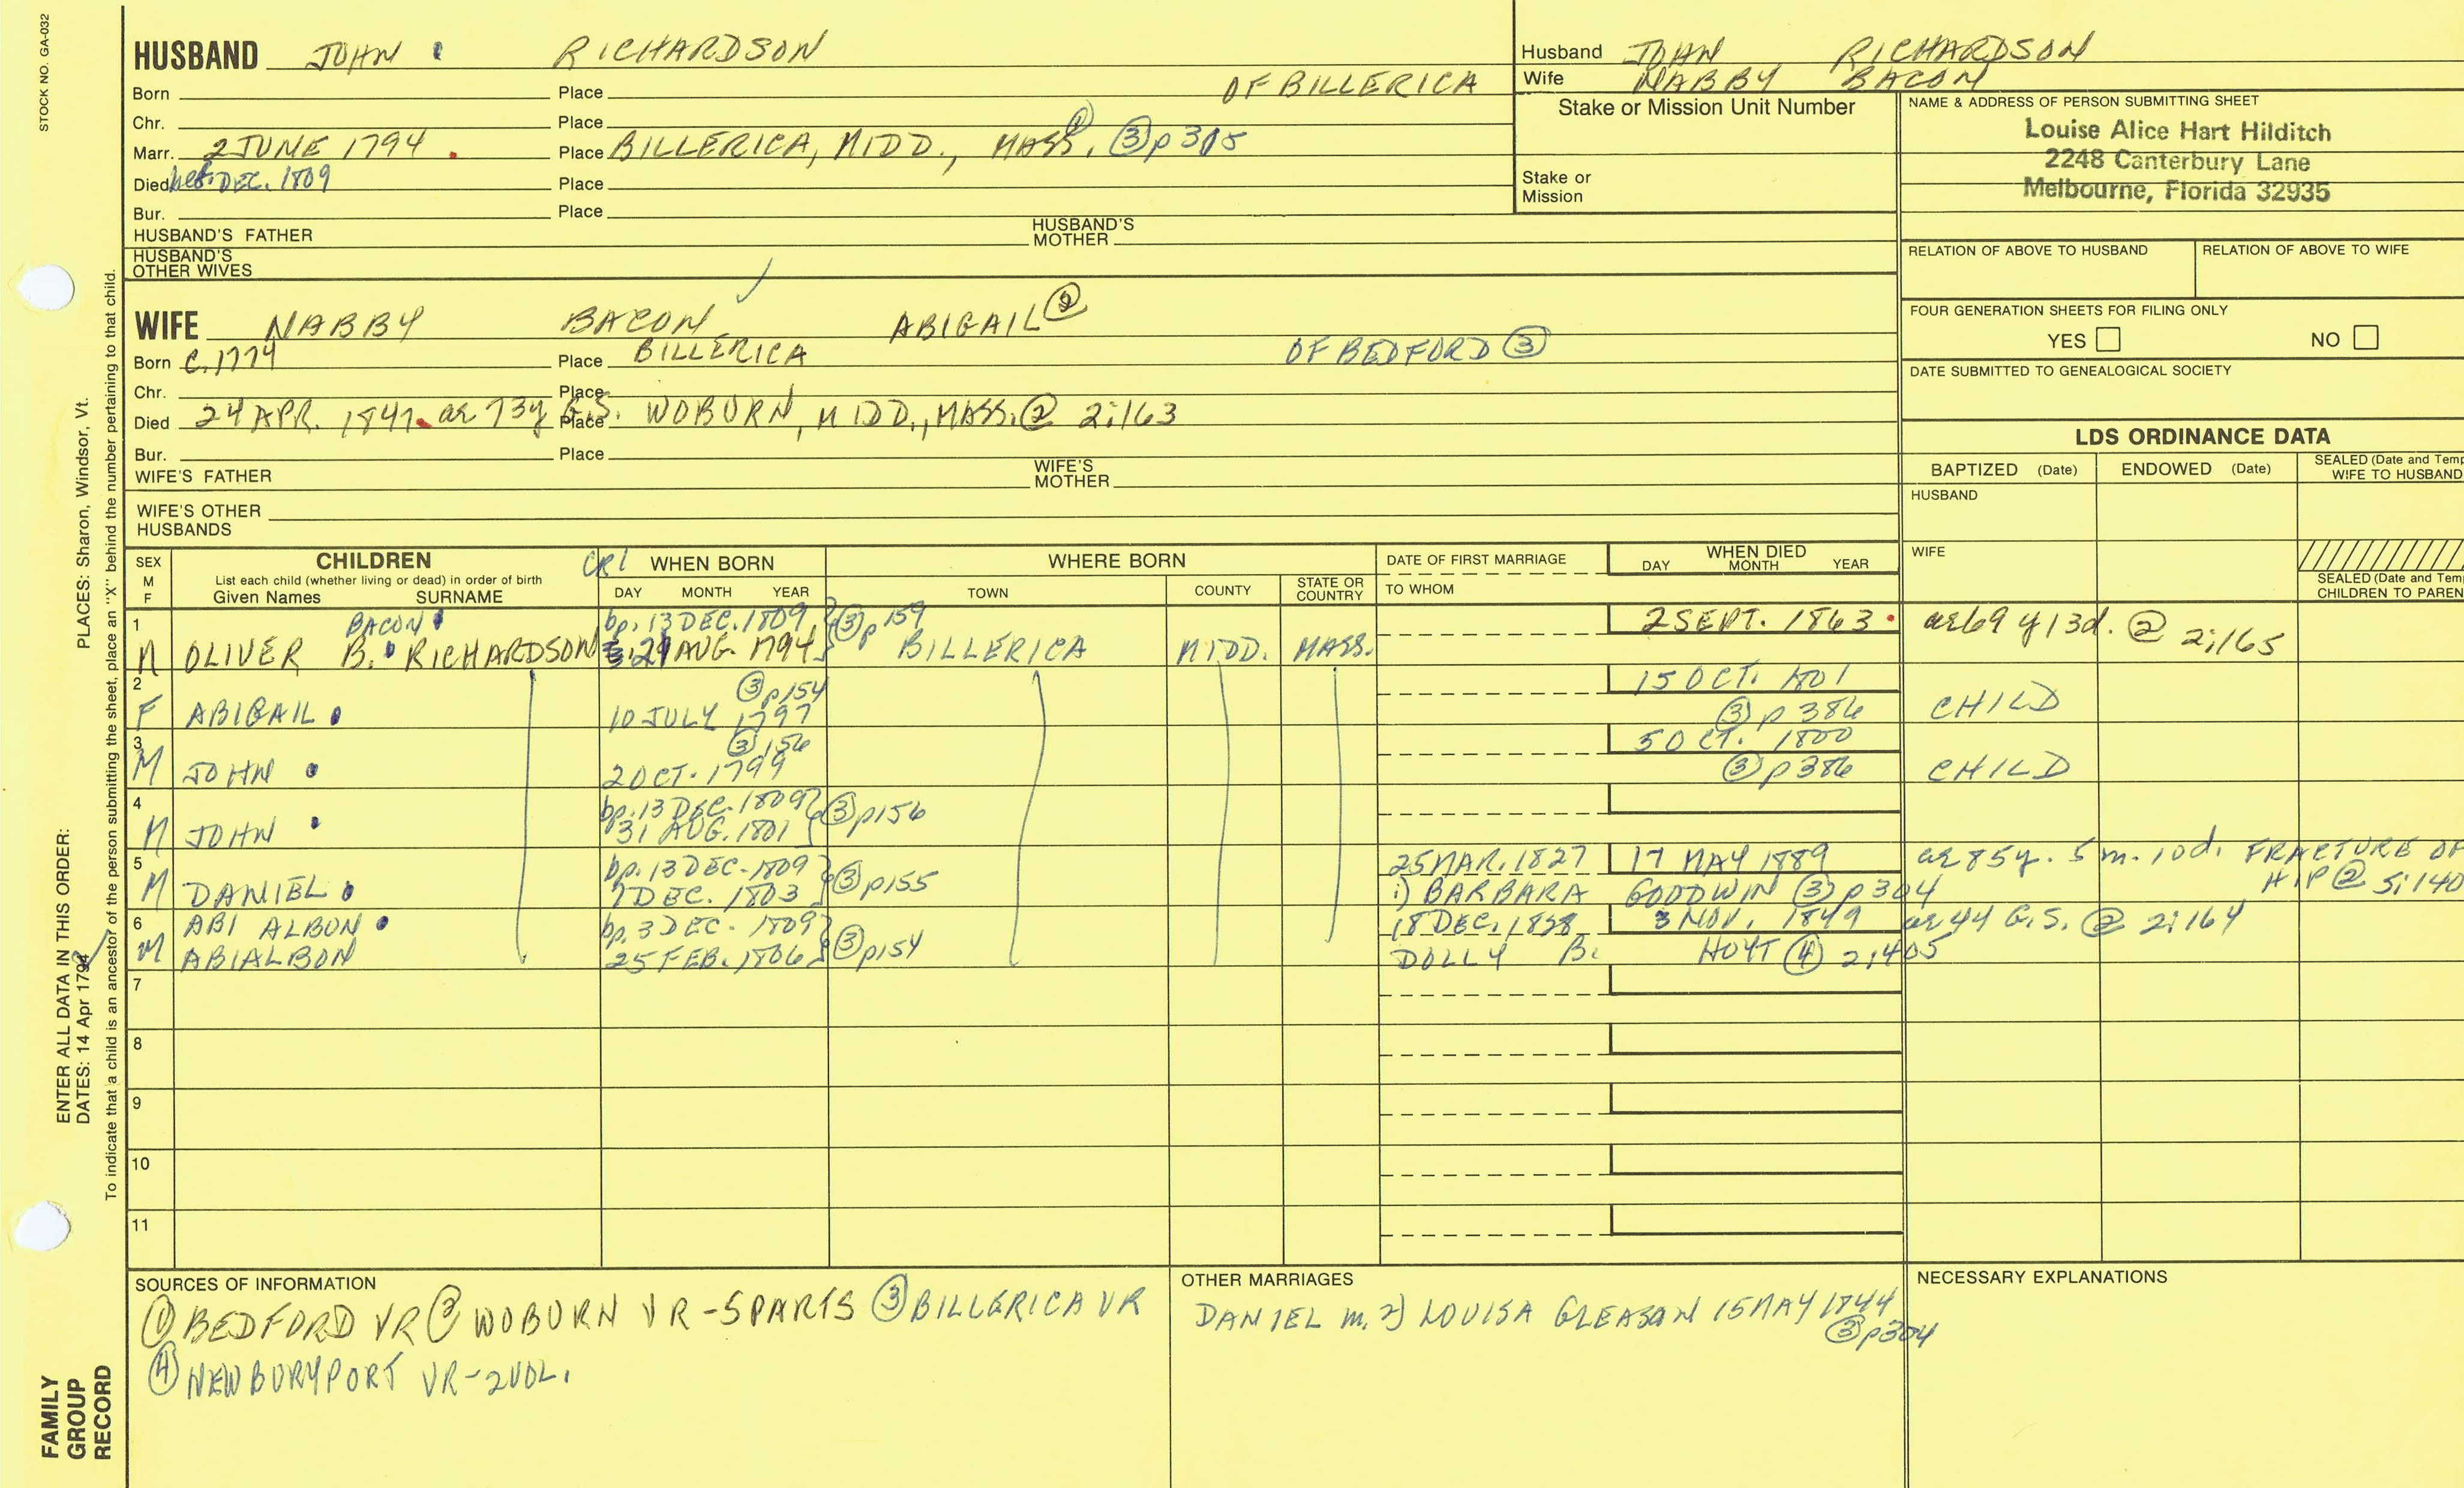 STOCK NO. GA-032
HUSBAND JOHN RICHARDSON
OF BILLERICA
Born Place
Chr. Place
Marr. 2 JUNE 1794 . Place BILLERICA, MIDD., MASS. ① ③ p 305
Died bef. DEC. 1809 Place
Bur. Place
HUSBAND'S FATHER HUSBAND'S MOTHER
HUSBAND'S OTHER WIVES
Husband JOHN RICHARDSON
Wife NABBY BACON
Stake or Mission Unit Number
Stake or Mission
NAME & ADDRESS OF PERSON SUBMITTING SHEET
Louise Alice Hart Hilditch
2248 Canterbury Lane
Melbourne, Florida 32935
RELATION OF ABOVE TO HUSBAND RELATION OF ABOVE TO WIFE
FOUR GENERATION SHEETS FOR FILING ONLY
YES NO
DATE SUBMITTED TO GENEALOGICAL SOCIETY
WIFE NABBY BACON ABIGAIL ②
Born C. 1774 Place BILLERICA OF BEDFORD ③
Chr. Place
Died 24 APR. 1847. ae 73y G.S. Place WOBURN, MIDD., MASS. ② 2:163
Bur. Place
WIFE'S FATHER WIFE'S MOTHER
WIFE'S OTHER HUSBANDS
LDS ORDINANCE DATA
BAPTIZED (Date) ENDOWED (Date) SEALED (Date and Temp
WIFE TO HUSBAND
HUSBAND
WIFE
SEALED (Date and Tem
CHILDREN TO PAREN
SEX M F
CHILDREN
List each child (whether living or dead) in order of birth
Given Names SURNAME
CR1 WHEN BORN
DAY MONTH YEAR
WHERE BORN
TOWN COUNTY STATE OR COUNTRY
DATE OF FIRST MARRIAGE
TO WHOM
WHEN DIED
DAY MONTH YEAR
1 BACON bp. 13 DEC. 1809 ③ p159 2 SEPT. 1863 . ae 69 y 13d. ② 2:165
M OLIVER B. RICHARDSON 21 AUG. 1794 BILLERICA MIDD. MASS.
2 ③ p154 15 OCT. 1801
F ABIGAIL 10 JULY 1797 ③ p 386 CHILD
3 ③ 156 5 OCT. 1800
M JOHN 2 OCT. 1799 ③ p386 CHILD
4 bp. 13 DEC. 1809 ③ p156
M JOHN 31 AUG. 1801
5 bp. 13 DEC. 1809 ③ p155 25 MAR. 1827 17 MAY 1889 ae 85y. 5 m. 10d. FRACTURE OF
M DANIEL 7 DEC. 1803 1) BARBARA GOODWIN ③ p 304 HIP ② 5:140
6 ABI ALBON bp. 3 DEC. 1809 ③ p154 18 DEC. 1828 3 NOV. 1849 ae 44 G.S. ② 2:164
M ABIALBON 25 FEB. 1806 DOLLY B. HOYT ④ 2:405
7
8
9
10
11
SOURCES OF INFORMATION
① BEDFORD VR ② WOBURN VR-5PARTS ③ BILLERICA VR
④ NEWBURYPORT VR-2VOL.
OTHER MARRIAGES
DANIEL m. 2) LOUISA GLEASON 15 MAY 1844
③ p304
NECESSARY EXPLANATIONS
FAMILY GROUP RECORD
ENTER ALL DATA IN THIS ORDER:
DATES: 14 Apr 1794
PLACES: Sharon, Windsor, Vt.
To indicate that a child is an ancestor of the person submitting the sheet, place an "X" behind the number pertaining to that child.